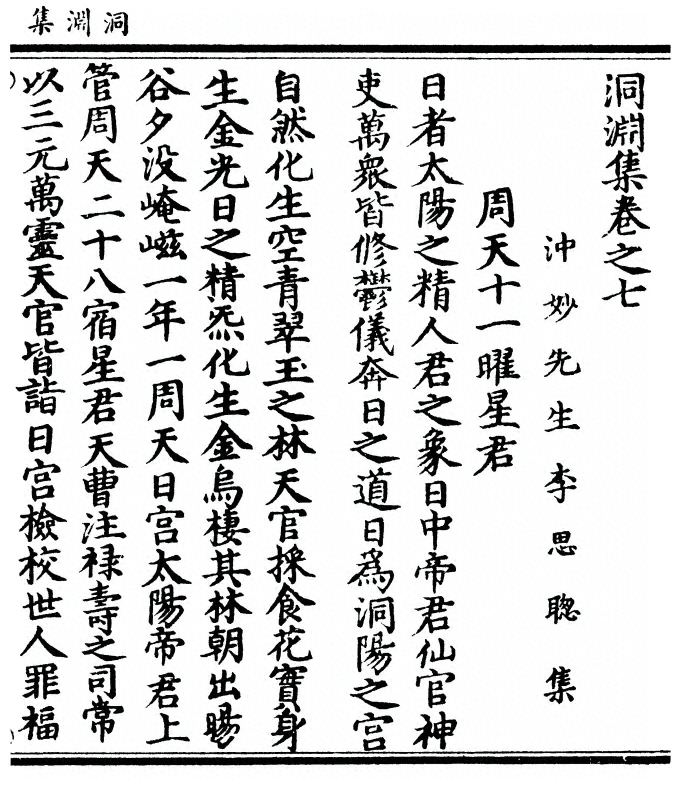 洞淵集
洞淵集卷之七
沖妙先生李思聰集
周天十一曜星君
日者太陽之精人君之象日中帝君仙官神
吏萬衆皆修鬱儀奔日之道日爲洞陽之宮
自然化生空青翠玉之林天官採食花實身
生金光日之精炁化生金烏棲其林朝出暘
谷夕没崦嵫一年一周天日宮太陽帝君上
管周天二十八宿星君天曹注祿壽之司常
以三元萬靈天官皆詣日宮檢校世人罪福